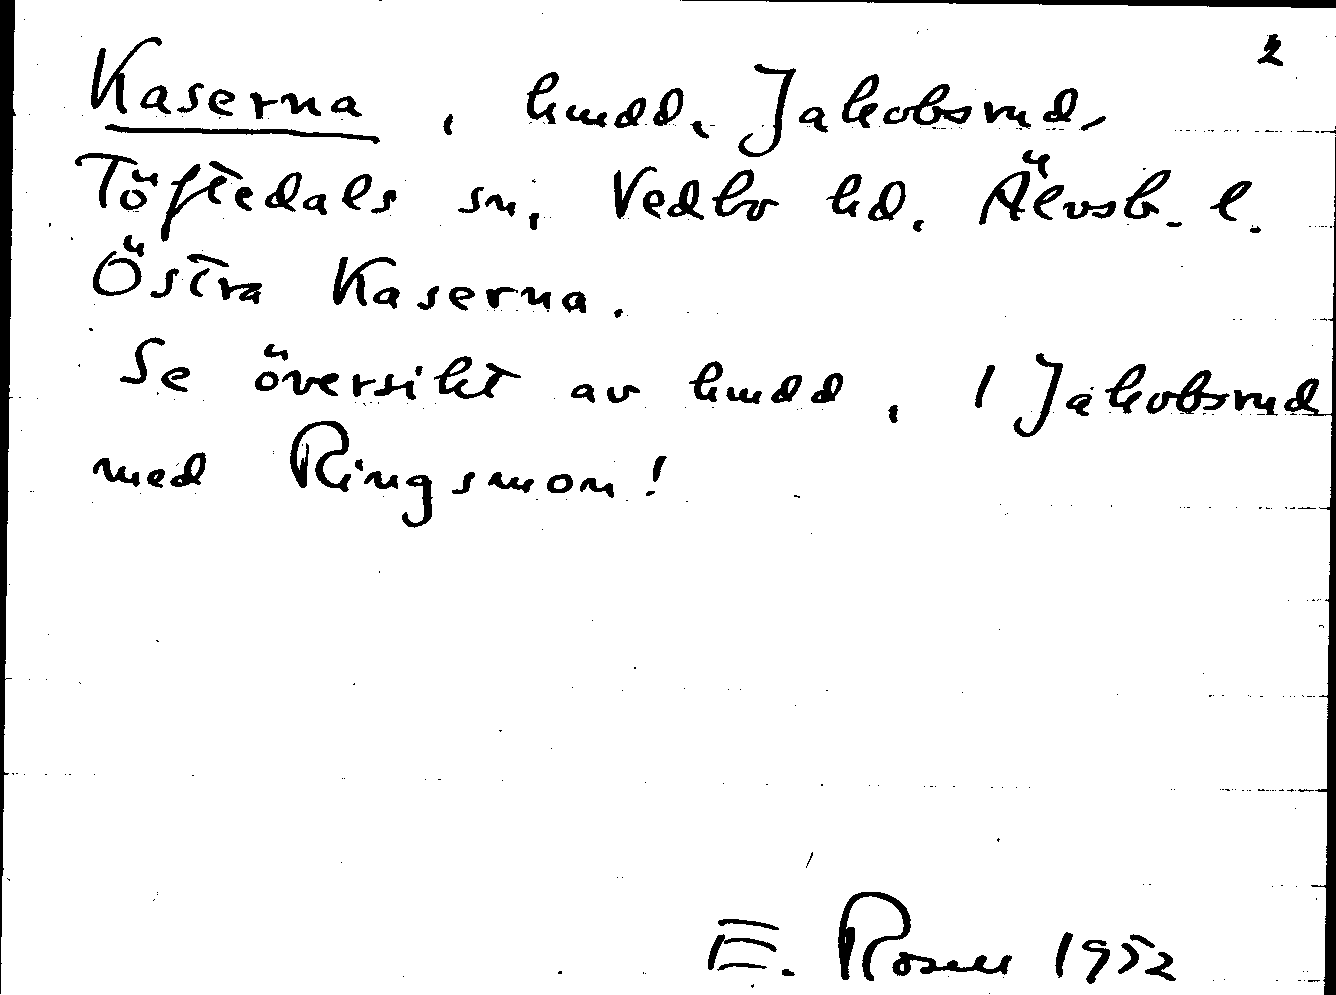 2
Kaserna, hmdd. Jakobsrud,
Töftedals sn, Vedbo hd. Älvsb. l.
Östra Kaserna.
Se översikt av hmdd, 1 Jakobsrud
med Ringsmon!
E. Rosell 1952